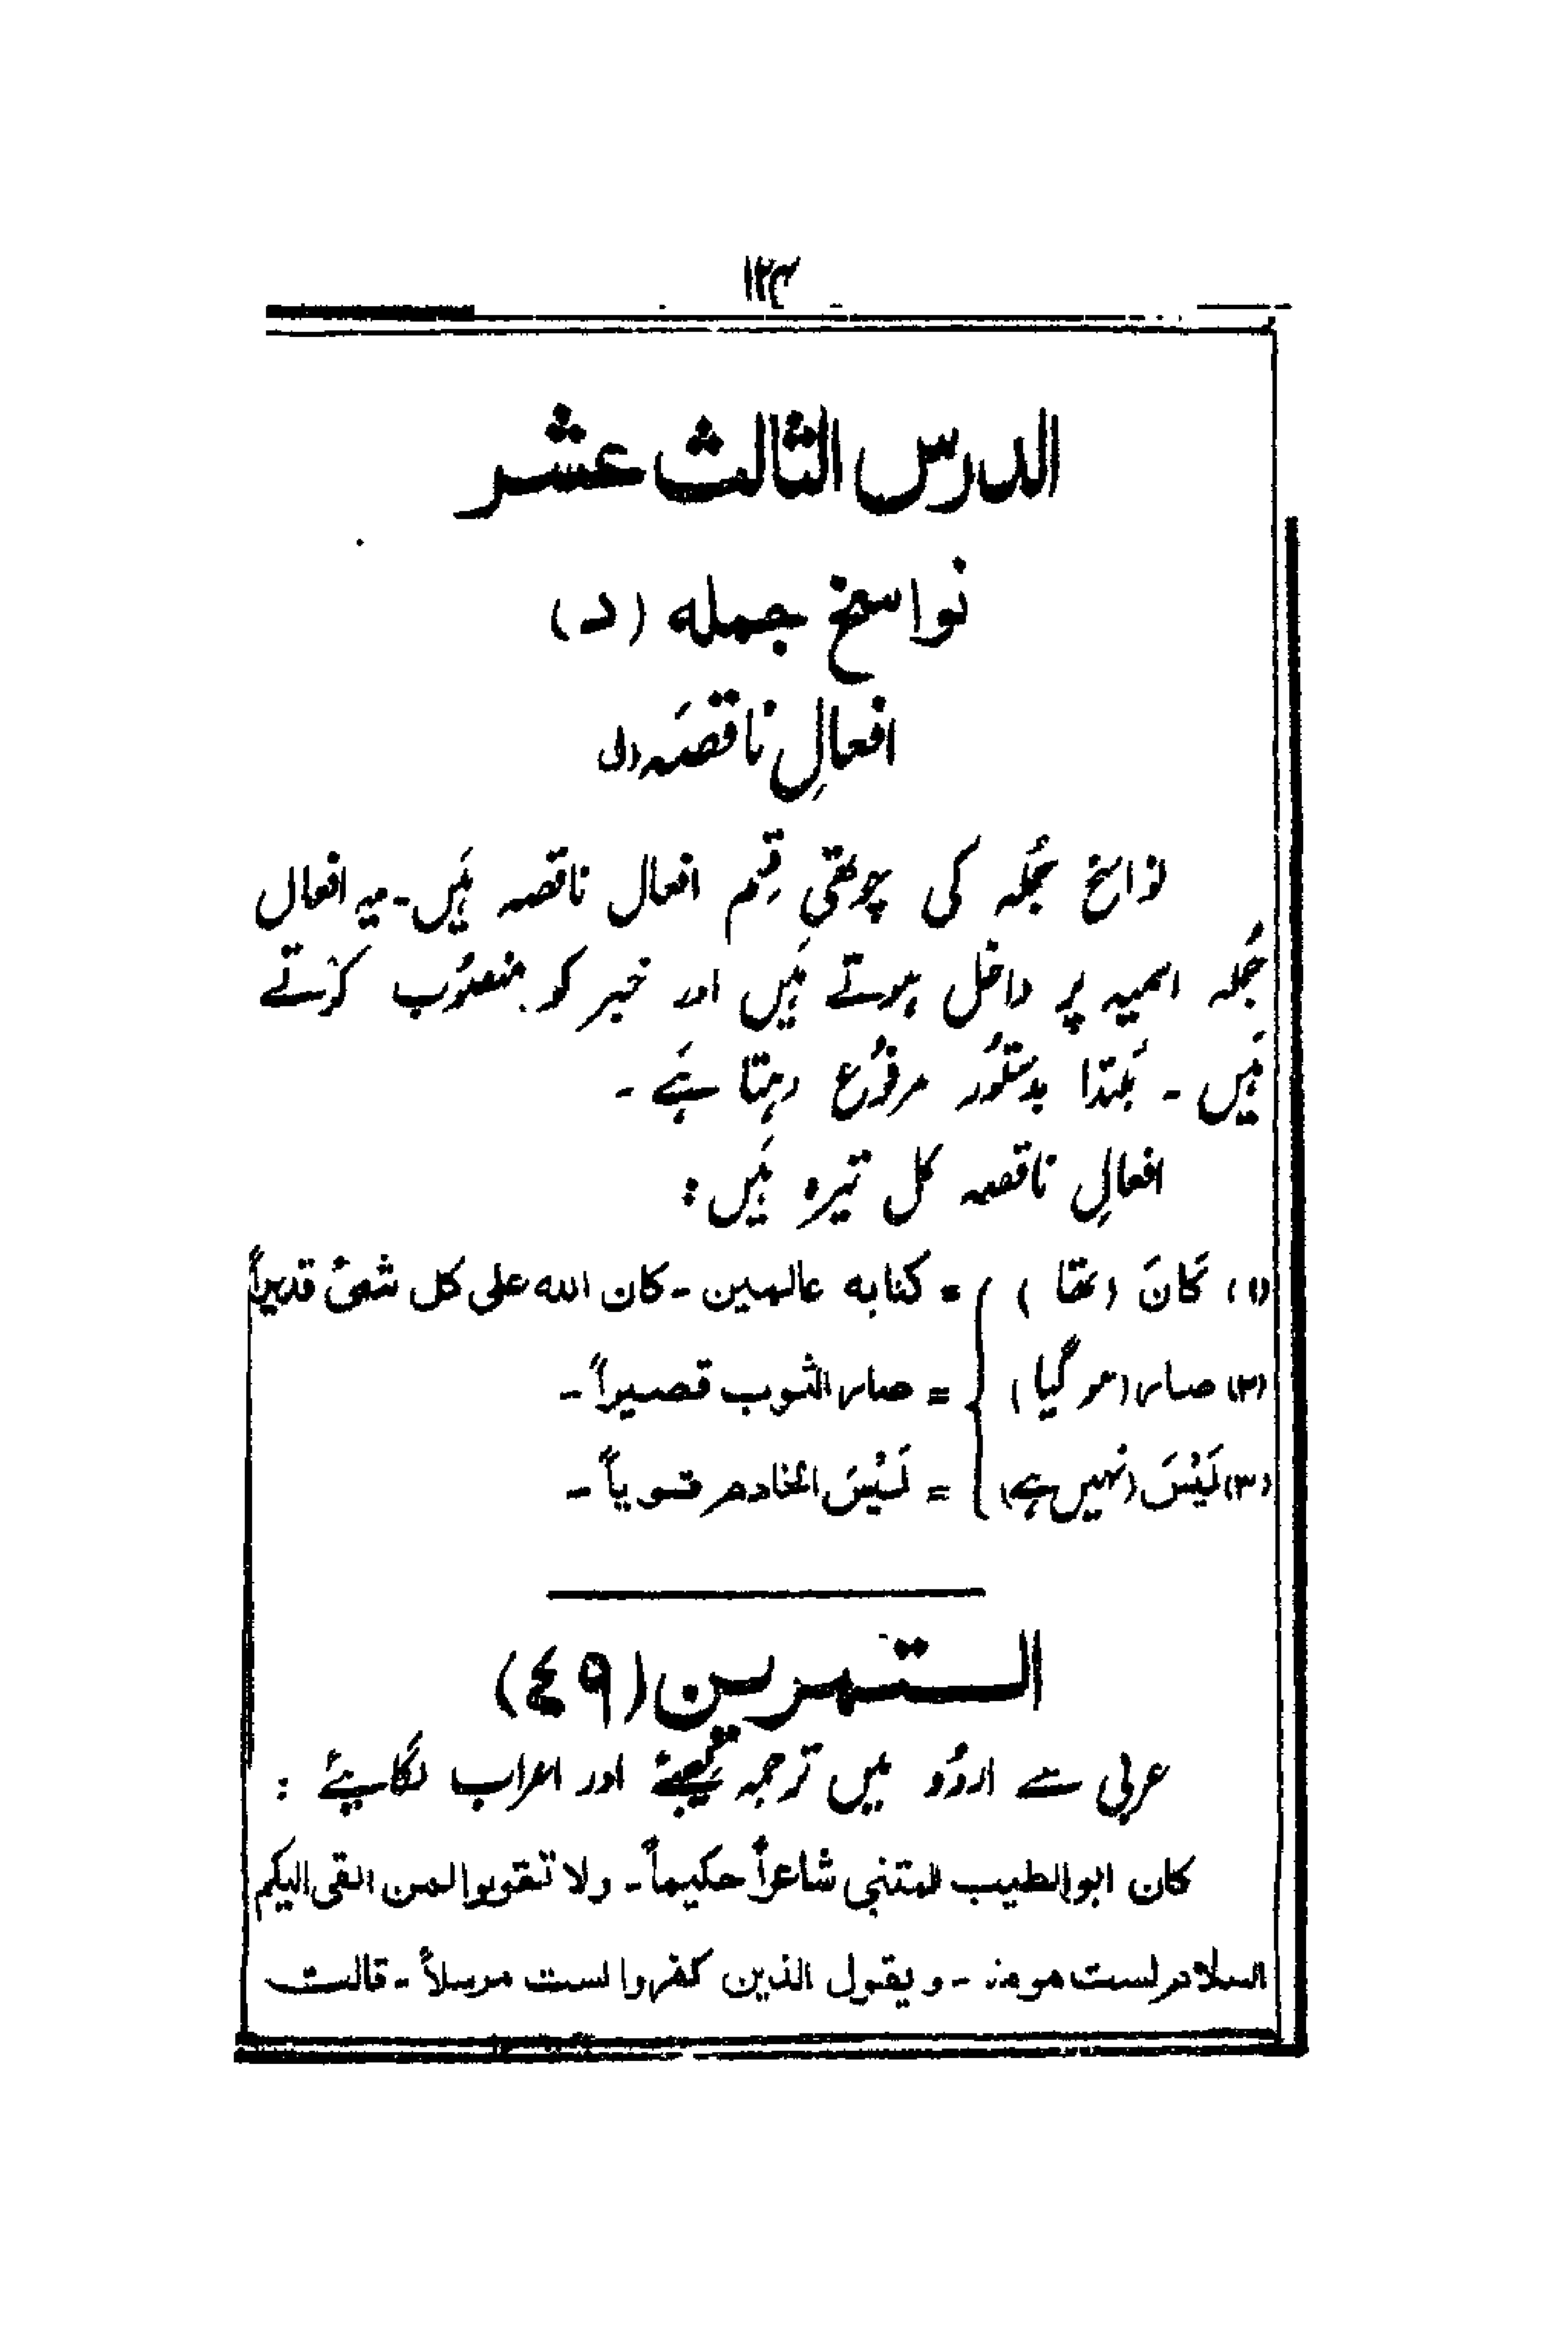 ۱۲۴
الدرس الثالث عشر
نواسخ جمله (د)
افعالِ ناقصَه (ل)
نواسخ جُملہ کی چوتھی قِسم افعال ناقصہ ہَیں۔ یہ افعال
جُملہ اسمیہ پر داخل ہوتے ہَیں اور خبر کو منصُوب کرتے
ہَیں ۔ مُبتدا بدستُور مرفُوع رہتا ہَے ۔
افعالِ ناقصہ کل تیرہ ہَیں :
(۱) كَانَ (تھا) = كنابه عالمين ـ كان الله على كل شىءٍ قديراً
(۲) صار (ہو گیا) = صار الثوب قصيراً ـ
(۳) لَيْسَ (نہیں ہے) = لَيْسَ الخادم قوياً ـ
التمرين (٤٩)
عربی سے اردُو میں ترجمہ کیجئے اور اعراب لگایئے :
كان ابوالطيب المتنبى شاعراً حكيماً ـ ولا تقولوا لمن القى اليكم
السلام لست مومنا ـ و يقول الذين كفروا لست مرسلاً ـ قالت